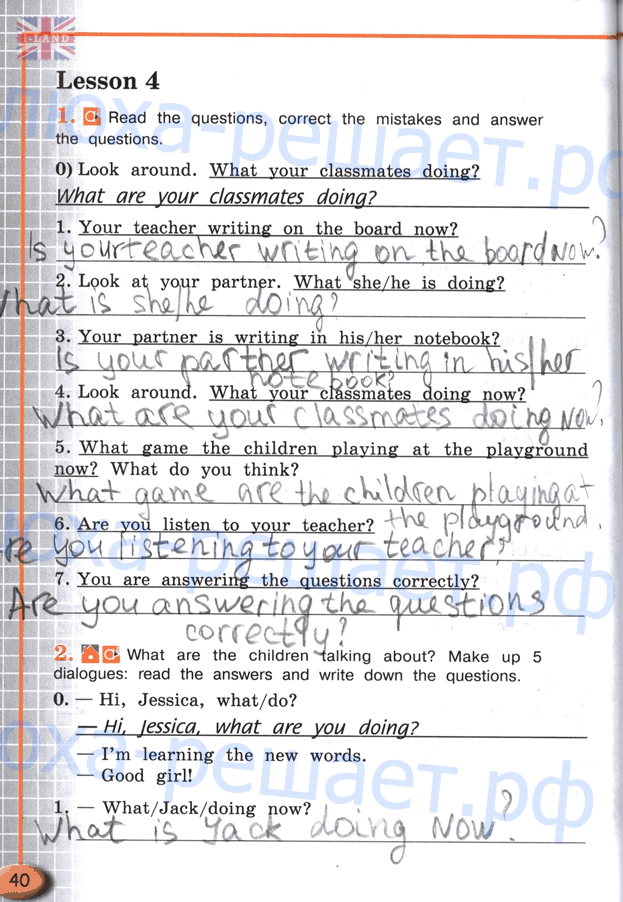 I-LAND
Lesson 4
1. Read the questions, correct the mistakes and answer
the questions.
0) Look around. What your classmates doing?
What are your classmates doing?
1. Your teacher writing on the board now?
Is your teacher writing on the board now?
2. Look at your partner. What she/he is doing?
What is she/he doing?
3. Your partner is writing in his/her notebook?
Is your partner writing in his/her
notebook?
4. Look around. What your classmates doing now?
What are your classmates doing now?
5. What game the children playing at the playground
now? What do you think?
What game are the children playing at
the playground.
6. Are you listen to your teacher?
re you listening to your teacher?
7. You are answering the questions correctly?
Are you answering the questions
correctly?
2. What are the children talking about? Make up 5
dialogues: read the answers and write down the questions.
0. — Hi, Jessica, what/do?
— Hi, Jessica, what are you doing?
— I'm learning the new words.
— Good girl!
1. — What/Jack/doing now?
What is Jack doing now?
40
люха-решает.рф
люха-решает.рф
люха-решает.рф